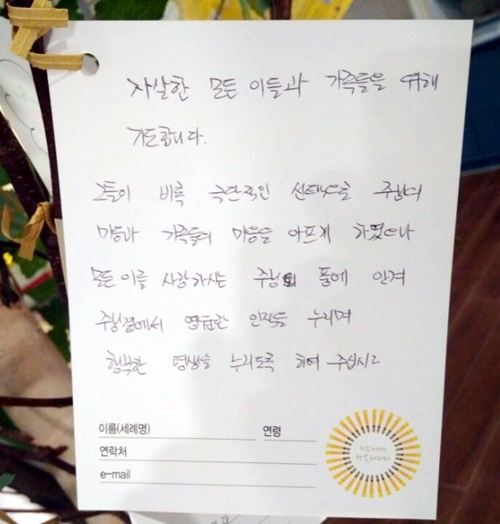 자살한 모든 이들과 가족들을 위해
기도합니다.
그들이 비록 극단적인 선택으로 주님의
마음과 가족들의 마음을 아프게 하였으나
모든 이를 사랑하시는 주님의 품에 안겨
주님곁에서 영원한 안식을 누리며
행복한 영생을 누리도록 하여 주십시오
이름(세례명) 연령
연락처
e-mail